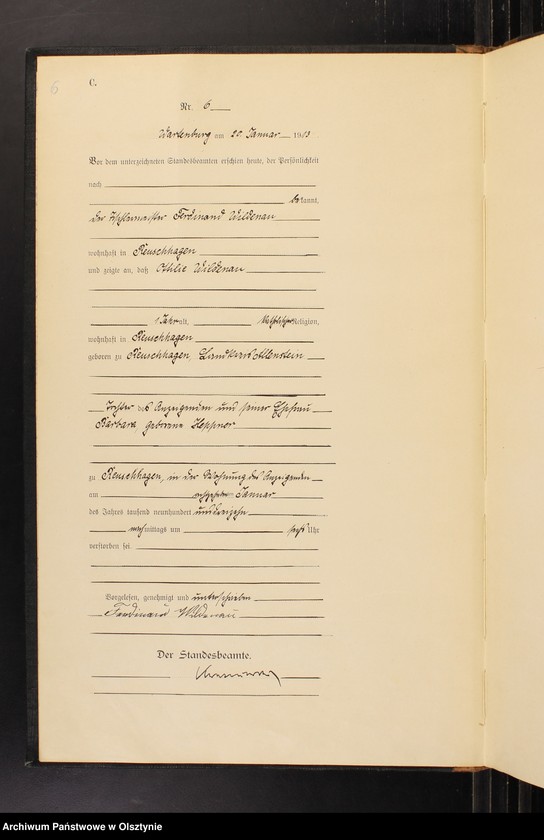 6
C.
Nr. 6
Wartenburg am 20. Januar 1913
Vor dem unterzeichneten Standesbeamten erschien heute, der Persönlichkeit
nach
bekannt,
der Tischlermeister Ferdinand Wildenau
wohnhaft in Reuschhagen
und zeigte an, daß Wildenau
1 Jahr alt, katholischer Religion,
wohnhaft in Reuschhagen
geboren zu Reuschhagen, Landkreis Allenstein
Tochter des Anzeigenden und seiner Ehefrau
Barbara geborene Heppner
zu Reuschhagen, in der Wohnung des Anzeigenden
am achtzehnten Januar
des Jahres tausend neunhundert unddreizehn
nachmittags um sechs Uhr
verstorben sei
Vorgelesen, genehmigt und unterschrieben
Ferdinand Wildenau
Der Standesbeamte.
Archiwum Państwowe w Olsztynie